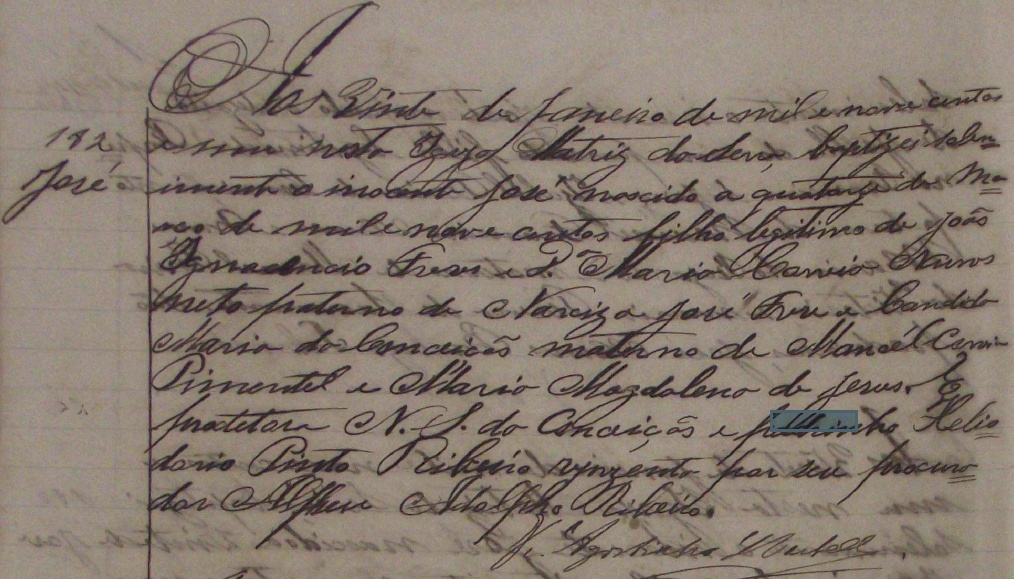 Aos Vinte de Janeiro de mil e nove centos
182 e um nesta Igreja Matriz da Serra baptizei solem=
José nimente o inocente José nascido a quatorze de Ma=
rço de mil e nove centos filho legitimo de João
Freri e D. Maria Correia Nunes
neto paterno de Narcizo José Freri e Candida
Maria da Conceição materno de Manoel Correia
Pimentel e Maria Magdalena de Jesus. E
protetora N. S. da Conceição e Helio=
doro Pinto Ribeiro por seu procura=
dor Adolpho Ribeiro.
Agostinho